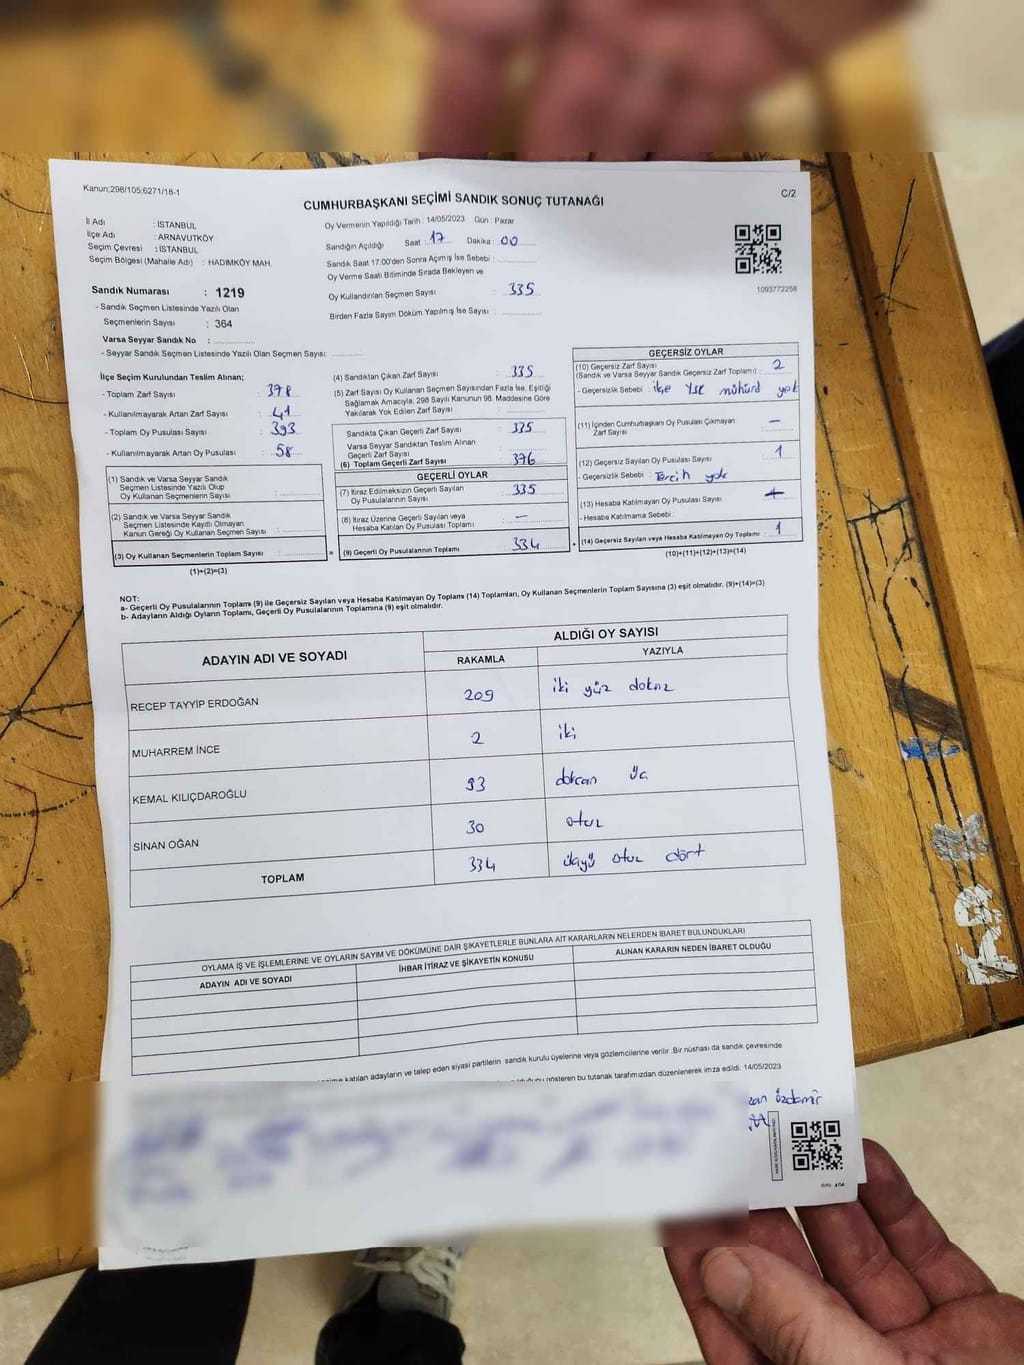 Kanun;298/105;6271/18-1
C/2
CUMHURBAŞKANI SEÇİMİ SANDIK SONUÇ TUTANAĞI
İl Adı : İSTANBUL
İlçe Adı : ARNAVUTKÖY
Seçim Çevresi : İSTANBUL
Seçim Bölgesi (Mahalle Adı) : HADIMKÖY MAH.
Sandık Numarası : 1219
- Sandık Seçmen Listesinde Yazılı Olan
Seçmenlerin Sayısı : 364
Varsa Seyyar Sandık No :
- Seyyar Sandık Seçmen Listesinde Yazılı Olan Seçmen Sayısı:
Oy Vermenin Yapıldığı Tarih : 14/05/2023 Gün : Pazar
Sandığın Açıldığı Saat : 17 Dakika : 00
Sandık Saat 17.00'den Sonra Açılmış İse Sebebi :
Oy Verme Saati Bitiminde Sırada Bekleyen ve
Oy Kullandırılan Seçmen Sayısı : 335
Birden Fazla Sayım Döküm Yapılmış İse Sayısı :
1093772258
İlçe Seçim Kurulundan Teslim Alınan;
- Toplam Zarf Sayısı : 378
- Kullanılmayarak Artan Zarf Sayısı : 41
- Toplam Oy Pusulası Sayısı : 393
- Kullanılmayarak Artan Oy Pusulası : 58
(1) Sandık ve Varsa Seyyar Sandık
Seçmen Listesinde Yazılı Olup
Oy Kullanan Seçmenlerin Sayısı :
(2) Sandık ve Varsa Seyyar Sandık
Seçmen Listesinde Kayıtlı Olmayan
Kanun Gereği Oy Kullanan Seçmen Sayısı :
(3) Oy Kullanan Seçmenlerin Toplam Sayısı :
(1)+(2)=(3)
(4) Sandıktan Çıkan Zarf Sayısı : 335
(5) Zarf Sayısı Oy Kullanan Seçmen Sayısından Fazla İse, Eşitliği
Sağlamak Amacıyla, 298 Sayılı Kanunun 98. Maddesine Göre
Yakılarak Yok Edilen Zarf Sayısı :
Sandıkta Çıkan Geçerli Zarf Sayısı : 335
Varsa Seyyar Sandıktan Teslim Alınan
Geçerli Zarf Sayısı :
(6) Toplam Geçerli Zarf Sayısı : 376
GEÇERLİ OYLAR
(7) İtiraz Edilmeksizin Geçerli Sayılan
Oy Pusulalarının Sayısı : 335
(8) İtiraz Üzerine Geçerli Sayılan veya
Hesaba Katılan Oy Pusulası Toplamı : —
= (9) Geçerli Oy Pusulalarının Toplamı 334
GEÇERSİZ OYLAR
(10) Geçersiz Zarf Sayısı
(Sandık ve Varsa Seyyar Sandık Geçersiz Zarf Toplamı) : 2
- Geçersizlik Sebebi : ilçe YSK mühürü yok
(11) İçinden Cumhurbaşkanı Oy Pusulası Çıkmayan
Zarf Sayısı : —
(12) Geçersiz Sayılan Oy Pusulası Sayısı : 1
- Geçersizlik Sebebi : Tercih yok
(13) Hesaba Katılmayan Oy Pusulası Sayısı
- Hesaba Katılmama Sebebi :
+ (14) Geçersiz Sayılan veya Hesaba Katılmayan Oy Toplamı : 1
(10)+(11)+(12)+(13)=(14)
NOT:
a- Geçerli Oy Pusulalarının Toplamı (9) ile Geçersiz Sayılan veya Hesaba Katılmayan Oy Toplamı (14) Toplamları, Oy Kullanan Seçmenlerin Toplam Sayısına (3) eşit olmalıdır. (9)+(14)=(3)
b- Adayların Aldığı Oyların Toplamı, Geçerli Oy Pusulalarının Toplamına (9) eşit olmalıdır.
ADAYIN ADI VE SOYADI
ALDIĞI OY SAYISI
RAKAMLA YAZIYLA
RECEP TAYYİP ERDOĞAN 209 iki yüz dokuz
MUHARREM İNCE 2 iki
KEMAL KILIÇDAROĞLU 93 doksan üç
SİNAN OĞAN 30 otuz
TOPLAM 334 üçyü otuz dört
OYLAMA İŞ VE İŞLEMLERİNE VE OYLARIN SAYIM VE DÖKÜMÜNE DAİR ŞİKAYETLERLE BUNLARA AİT KARARLARIN NELERDEN İBARET BULUNDUKLARI
ADAYIN ADI VE SOYADI İHBAR İTİRAZ VE ŞİKAYETİN KONUSU ALINAN KARARIN NEDEN İBARET OLDUĞU
katılan adayların ve talep eden siyasi partilerin sandık kurulu üyelerine veya gözlemcilerine verilir. Bir nüshası da sandık çevresinde
gösteren bu tutanak tarafımızdan düzenlenerek imza edildi. 14/05/2023
zan özdemir